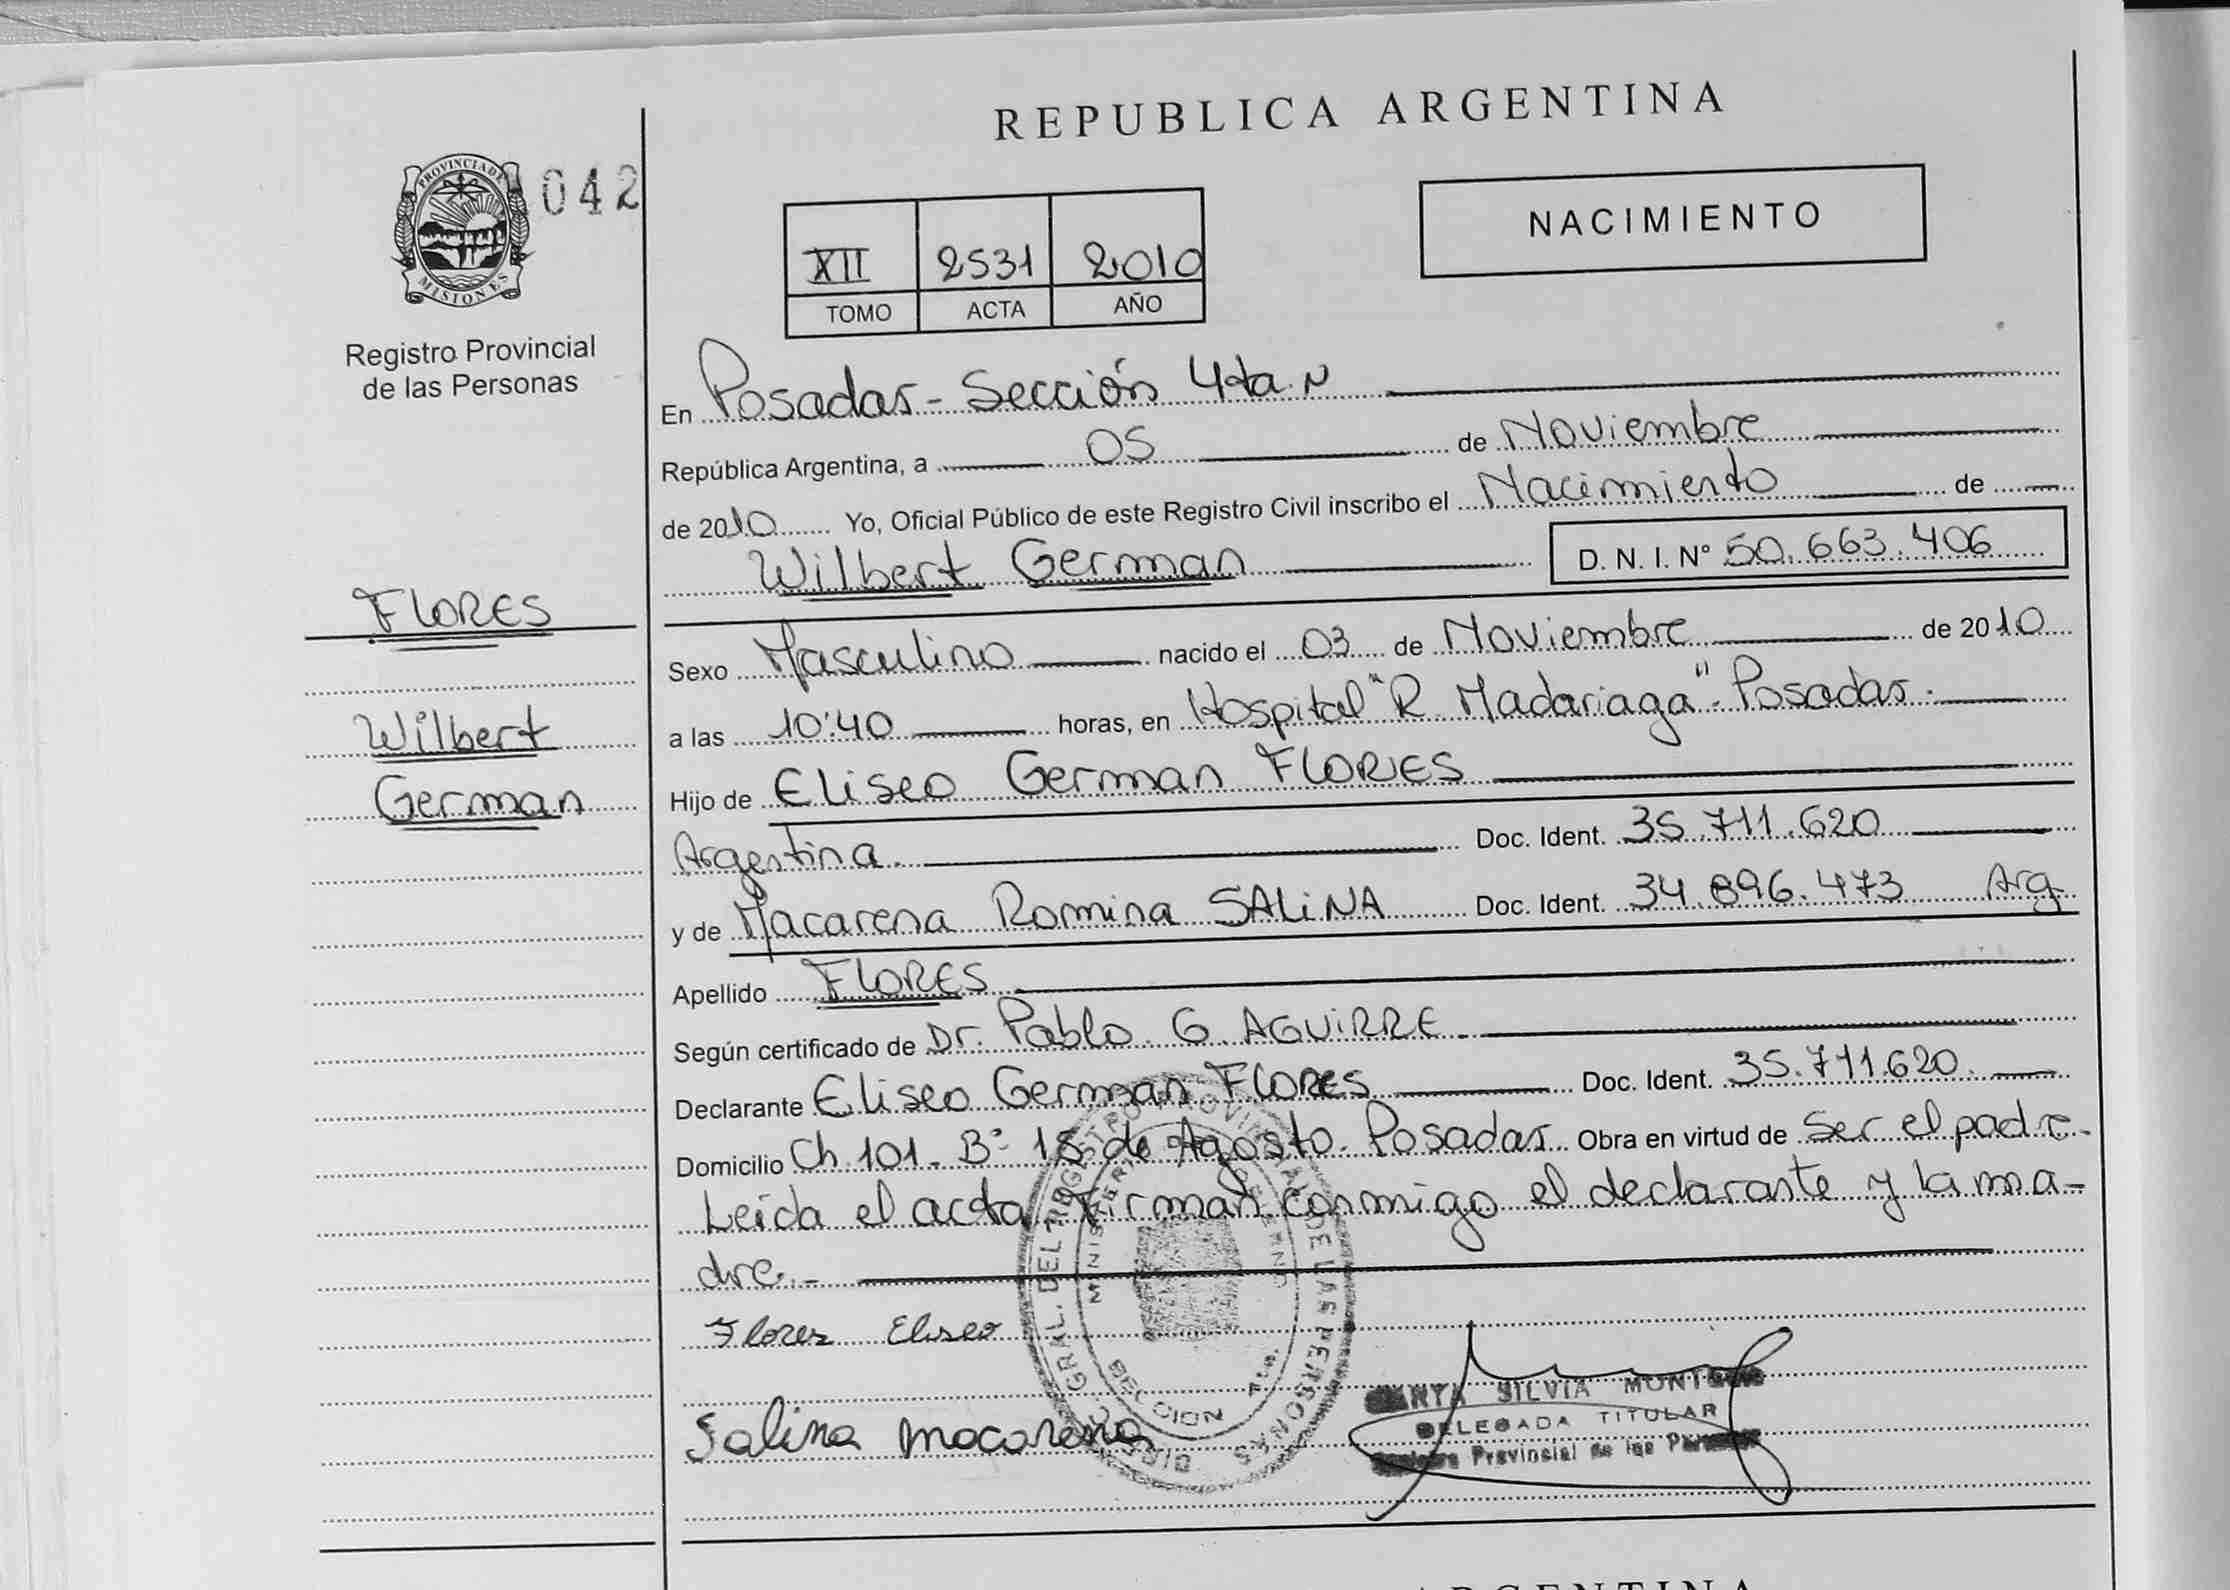 REPUBLICA ARGENTINA
PROVINCIA DE
MISIONES
042
Registro Provincial
de las Personas
XII 2531 2010
TOMO ACTA AÑO
NACIMIENTO
En Posadas - Sección 4ta. N
República Argentina, a 05 de Noviembre
de 2010 Yo, Oficial Público de este Registro Civil inscribo el Nacimiento de
Wilbert German D. N. I. Nº 50.663.406
FLORES
Wilbert
German
Sexo Masculino nacido el 03 de Noviembre de 2010
a las 10:40 horas, en Hospital "R. Madariaga". Posadas.
Hijo de Eliseo German FLORES
Argentina. Doc. Ident. 35.711.620
y de Macarena Romina SALiNA Doc. Ident. 34.896.473 Arg
Apellido FLORES
Según certificado de Dr. Pablo G. AGUiRRE.
Declarante Eliseo German FLORES Doc. Ident. 35.711.620.
Domicilio Ch. 101 - Bº 15 de Agosto. Posadas. Obra en virtud de Ser el padre.
Leida el acta, Firman conmigo el declarante y la ma-
dre. -
Flores Eliseo
Salina macarena
SILVIA
DELEGADA TITULAR
Provincial de las
SECCION
ARGENTINA